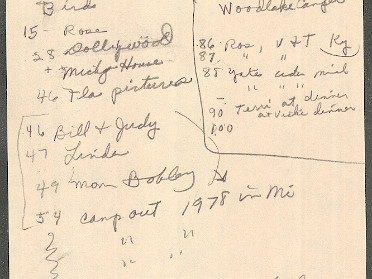 Birds
15- Rose
28 Dollywood
+ Michg House
46 Fla pictures
46 Bill & Judy
47 Linda
49 mom Bobby
54 camp out 1978 in Mi
" "
" "
Woodlake Campgr
86 Ros, V & T Ky
87 " " "
88 Yates cider mill
" " "
90 Terri at dinner
at Vicki dinner
100